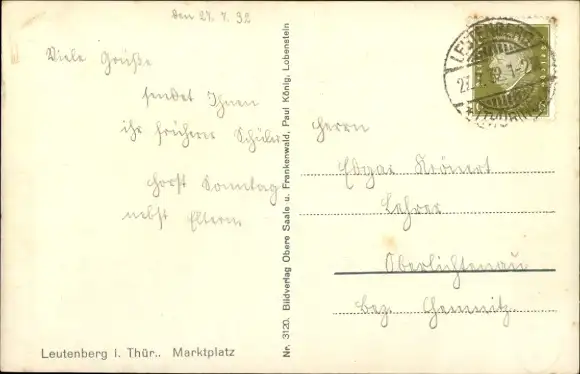 den 27. 7. 32
Viele Grüße
sendet Ihnen
ihr früherer Schüler
Horst Sonntag
nebst Eltern
Nr. 3120. Bildverlag Obere Saale u. Frankenwald, Paul König, Lobenstein
LEUTENBERG
27.7.32.
Herrn
Edgar Krönert
Lehrer
Oberlichtenau
bez. Chemnitz
Leutenberg i. Thür.. Marktplatz